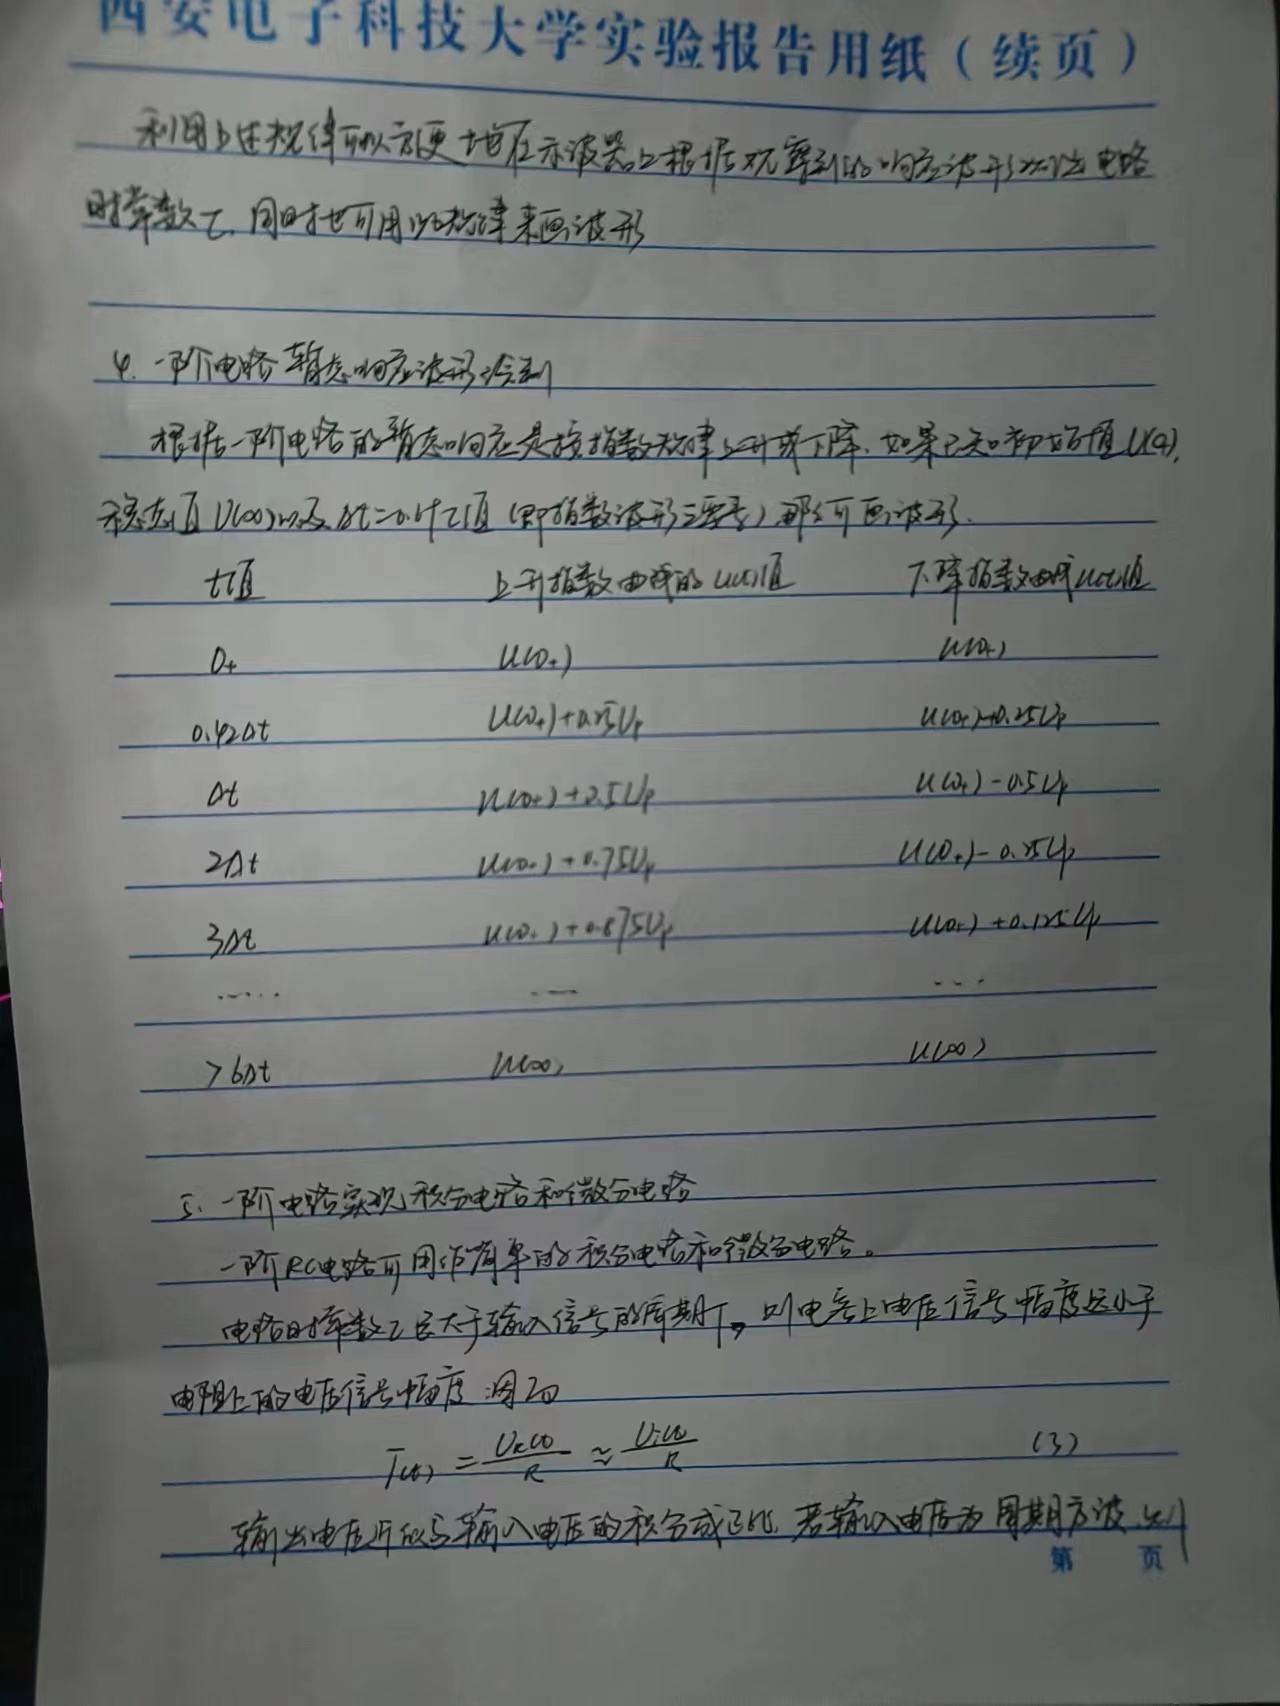 西安电子科技大学实验报告用纸（续页）
利用上述规律可以方便地在示波器上根据观察到的响应波形测出电路
时常数τ，同时也可用此规律来画波形
4. 一阶电路暂态响应波形绘制
根据一阶电路的暂态响应是按指数规律上升或下降，如果已知初始值U(0+),
稳态值U(∞)以及Δt=0.69τ值（即指数波形三要素）那么可画波形.
t值 上升指数曲线的u(t)值 下降指数曲线u(t)值
0+ U(0+) U(0+)
0.42Δt U(0+)+0.25Up U(0+)-0.25Up
Δt U(0+)+0.5Up U(0+)-0.5Up
2Δt U(0+)+0.75Up U(0+)-0.75Up
3Δt U(0+)+0.875Up U(0+)+0.125Up
...... ... ...
>6Δt U(∞) U(∞)
5. 一阶电路实现积分电路和微分电路
一阶RC电路可用作简单的积分电路和微分电路。
电路时常数τ远大于输入信号的周期T，则电容上电压信号幅度远小于
电阻上的电压信号幅度 因而
I(t) = UR(t)/R ≈ Ui(t)/R (3)
输出电压近似与输入电压的积分成正比. 若输入电压为周期方波，则
第 页